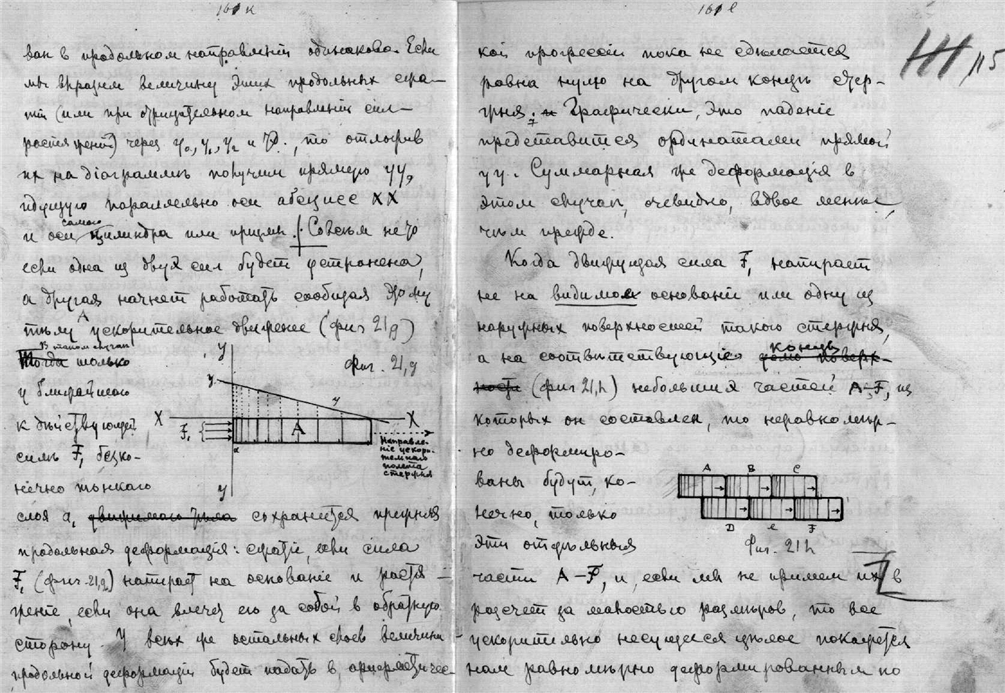 161 к
ван в продольном направленiи одинакова. Если
мы выразим величину этих продольных сжа-
тiй (или при отрицательном направленiи сил —
растяженiй) через y₀, y₁, y₂ и т.д., то отложив
их на дiаграммѣ получим прямую yy,
идущую параллельно оси абсцисс XX
и оси самого цилиндра или призмы. Совсѣм не то
если одна из двух сил будет устранена,
а другая начнет работать сообщая этому
тѣлу A ускорительное движенiе (фиг 21g)
В этом случаѣ
Тогда только
у ближайшаго
к дѣйствующей
силѣ F₁ безко-
нечно тонкаго
слоя a, движимаго тѣла сохранится прежняя
продольная деформацiя: сжатiе, если сила
F₁ (фиг. 21g) напирает на основанiе и растя-
женiе, если она влечет его за собой в обратную
сторону. У всѣх же остальных слоев величина
продольной деформацiи будет падать в арифметичес-
y
Фиг. 21,g
y
y
X
F₁
A
X
a
Направле-
нiе ускори-
тельнаго
полета
стержня
y
161 l
115
кой прогрессiи пока не сдѣлается
равна нулю на другом концѣ стер-
жня. Графически, это паденiе
представится ординатами прямой
yy. Суммарная же деформацiя в
этом случаѣ, очевидно, вдвое менѣе,
чѣм прежде.
Когда движущая сила F₁ напирает
не на видимое основанiе или одну из
наружных поверхностей такого стержня,
а на соотвѣтствующiе концы
(фиг 21,h) небольших частей A—F, из
которых он составлен, то неравномѣр-
но деформиро-
ваны будут, ко-
нечно, только
эти отдѣльныя
A B C
D e F
Фиг. 21h
части A—F, и, если мы не примем их в
разсчет за малостью размѣров, то все
ускорительно несущееся цѣлое покажется
нам равномѣрно деформированным по